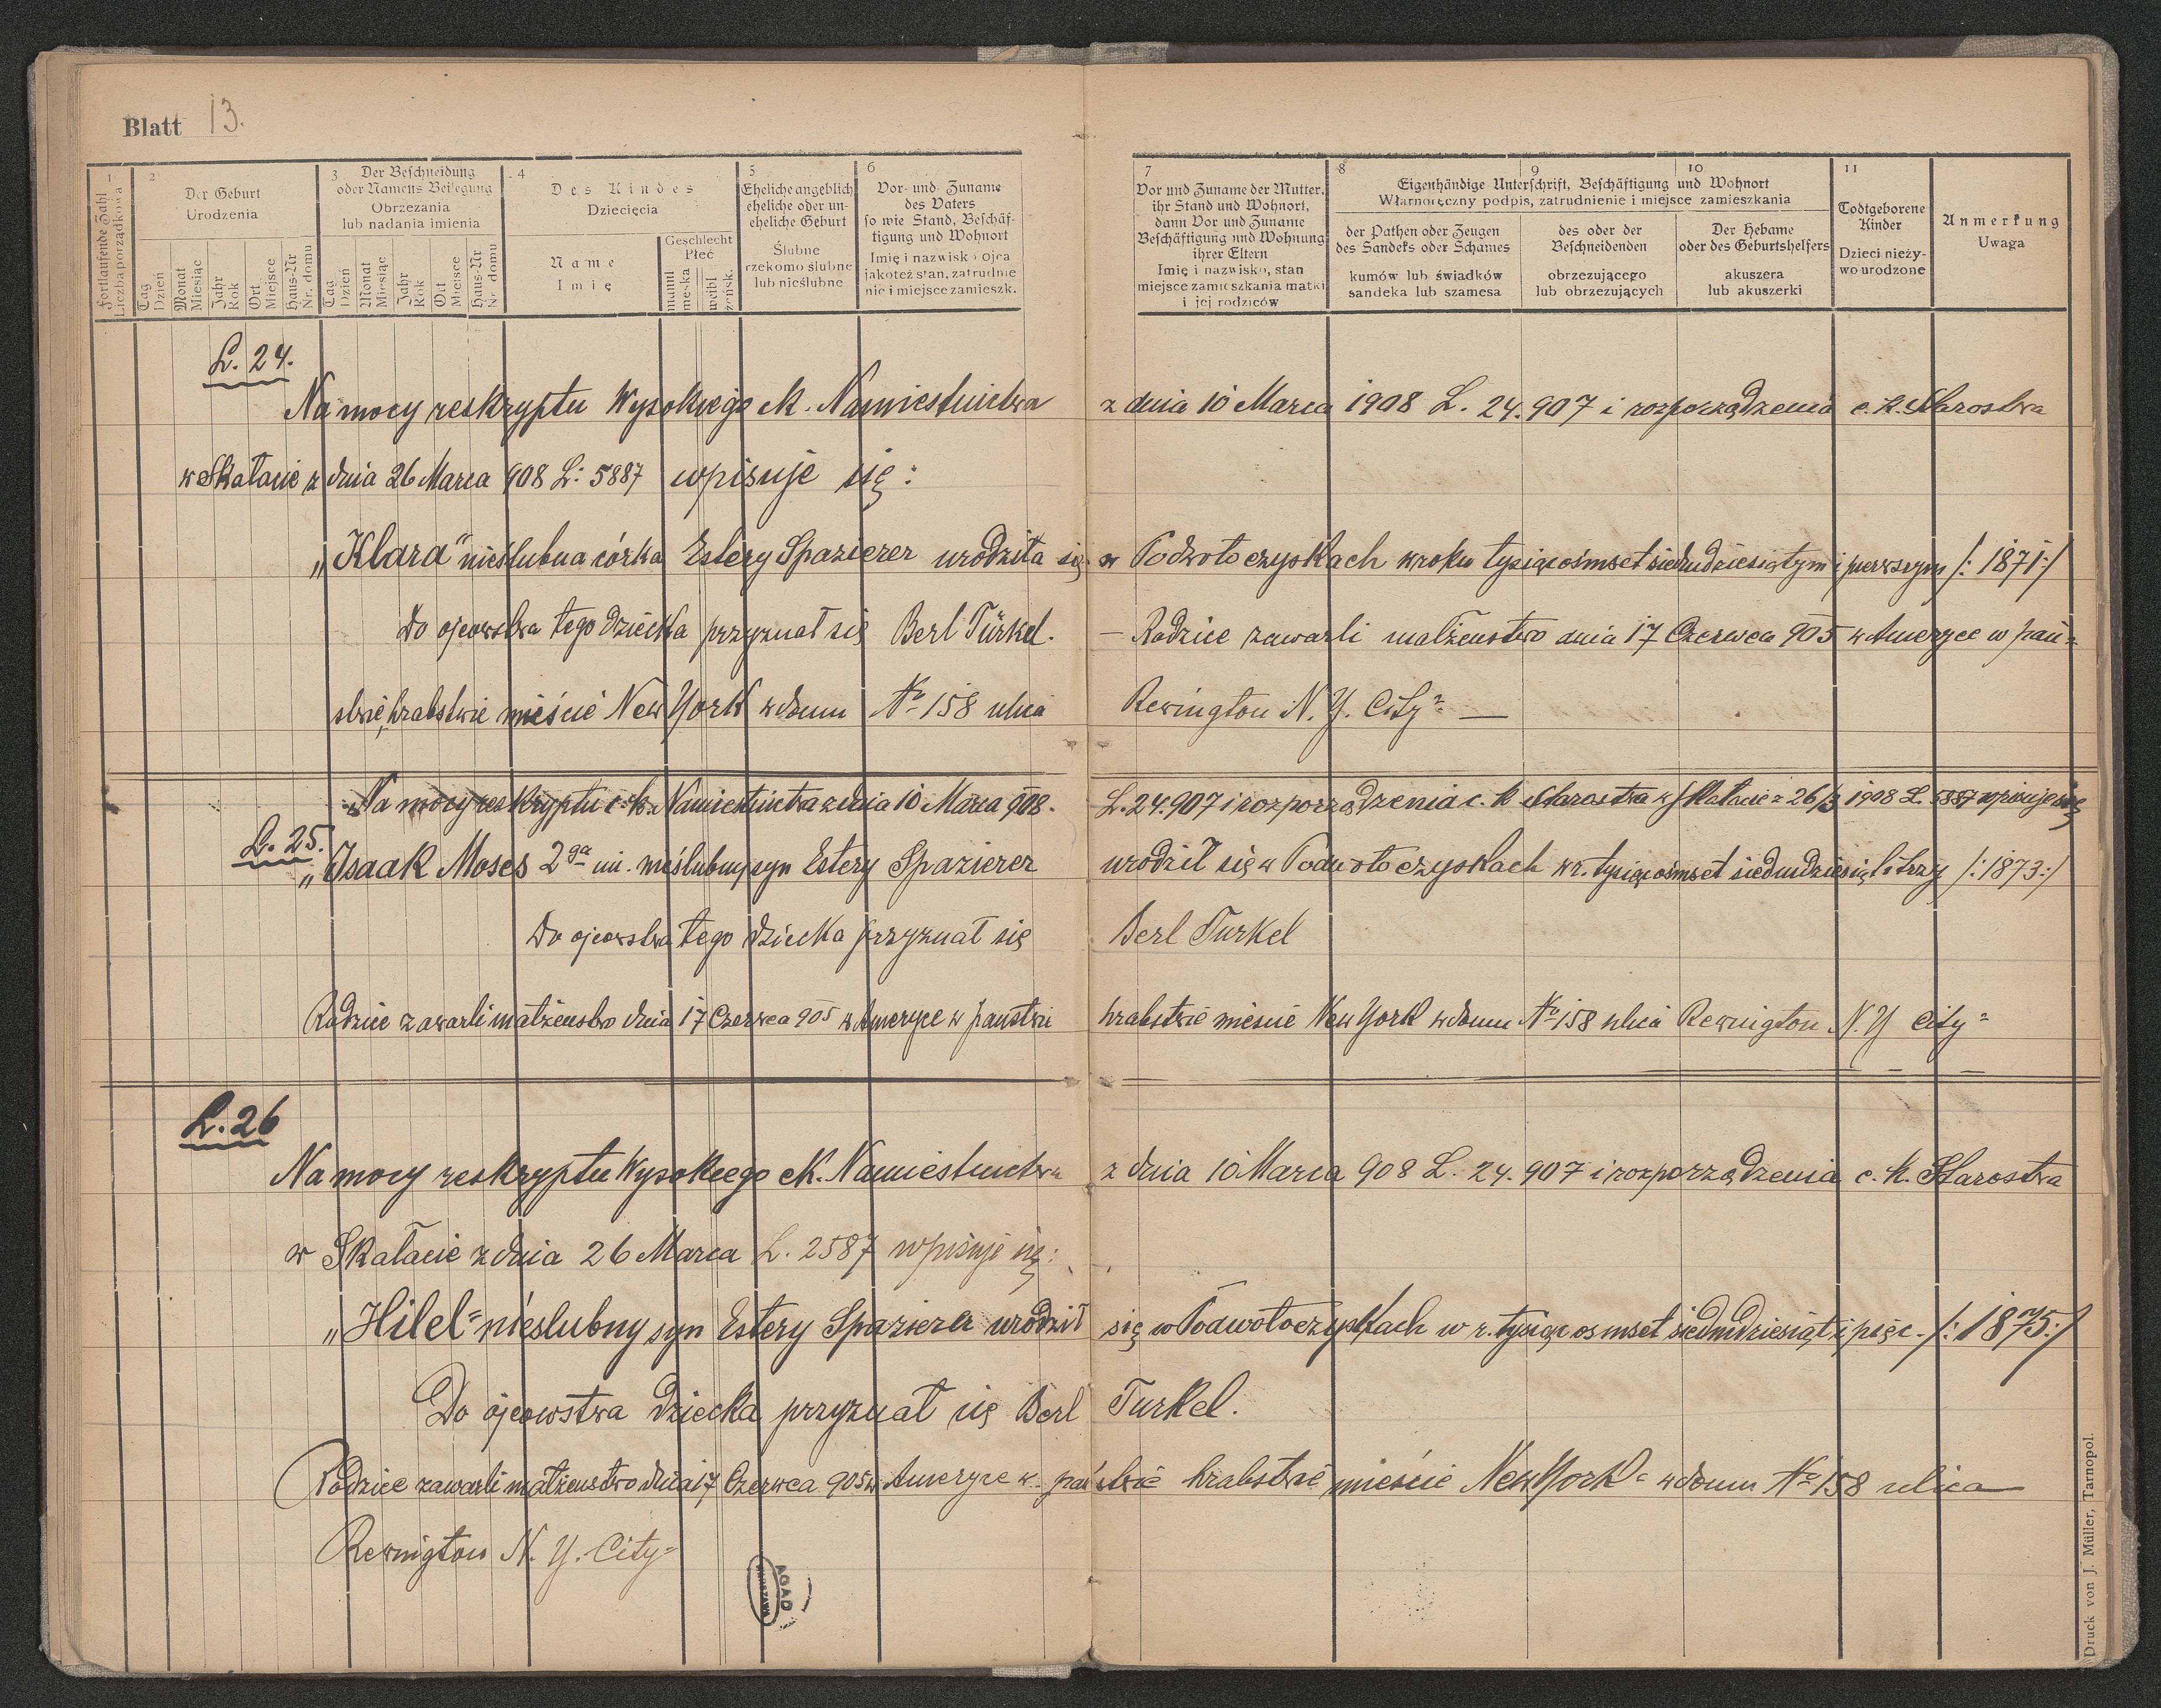 Blatt 13.
1
Fortlaufende Zahl
Liczba porządkowa
2
Der Geburt
Urodzenia
Tag
Dzień
Monat
Miesiąc
Jahr
Rok
Ort
Miejsce
Haus-Nr
Nr. domu
3
Der Beschneidung
oder Namens Beilegung
Obrzezania
lub nadania imienia
Tag
Dzień
Monat
Miesiąc
Jahr
Rok
Ort
Miejsce
Haus-Nr
Nr. domu
4
Des Kindes
Dziecięcia
Name
Imię
Geschlecht
Płeć
männl
męska
weibl
żeńsk.
5
Eheliche angeblich
eheliche oder un-
eheliche Geburt
Ślubne
rzekomo ślubne
lub nieślubne
6
Vor- und Zuname
des Vaters
so wie Stand, Beschäf-
tigung und Wohnort
Imię i nazwisko ojca
jakoteż stan, zatrudnie
nie i miejsce zamieszk.
7
Vor und Zuname der Mutter,
ihr Stand und Wohnort,
dann Vor und Zuname
Beschäftigung und Wohnung
ihrer Eltern
Imię i nazwisko, stan
miejsce zamieszkania matki
i jej rodziców
8 9 10
Eigenhändige Unterschrift, Beschäftigung und Wohnort
Własnoręczny podpis, zatrudnienie i miejsce zamieszkania
der Pathen oder Zeugen
des Sandeks oder Schames
kumów lub świadków
sandeka lub szamesa
des oder der
Beschneidenden
obrzezującego
lub obrzezujących
Der Hebame
oder des Geburtshelfers
akuszera
lub akuszerki
11
Todtgeborene
Kinder
Dzieci nieży-
wo urodzone
Anmerkung
Uwaga
L. 24.
Na mocy reskryptu Wysokiego ck. Namiestnictwa z dnia 10 Marca 1908 L. 24.907 i rozporządzenia c. k. Starostwa
w Skałacie z dnia 26 Marca 908 L: 5887 wpisuje się:
„Klara" nieślubna córka Estery Spazierer urodziła się w Podwołoczyskach w roku tysiąc ośmset siedmdziesiątym i pierwszym /: 1871:/
Do ojcowstwa tego dziecka przyznał się Berl Türkel. — Rodzice zawarli małżeństwo dnia 17 Czerwca 905 w Ameryce w pań=
stwie, hrabstwie mieście New York w domu No 158 ulica Rewington N. Y. City" —
Na mocy reskryptu c. k. Namiestnictwa z dnia 10 Marca 908. L. 24.907 i rozporządzenia c. k Starostwa w Skałacie z 26/3 1908 L. 5887 wpisuje się
L. 25. „Isaak Moses 2ga im. nieślubny syn Estery Spazierer urodził się w Podwołoczyskach w r. tysiąc ośmset siedmdziesiąt i trzy /:1873:/
Do ojcowstwa tego dziecka przyznał się Berl Turkel
Rodzice zawarli małżeństwo dnia 17 Czerwca 905 w Ameryce w państwie hrabstwie mieście New York w domu No 158 ulica Rewington N. Y City"
L. 26
Na mocy reskryptu Wysokiego ck. Namiestnictwa z dnia 10 Marca 908 L. 24.907 i rozporządzenia c. k. Starostwa
w Skałacie z dnia 26 Marca L. 2587 wpisuje się:
„Hilel" nieślubny syn Estery Spazierer urodził się w Podwołoczyskach w r. tysiąc osmset siedmdziesiąt i pięć. /: 1875:/
Do ojcowstwa dziecka przyznał się Berl Turkel.
Rodzice zawarli małżeństwo dnia 17 Czerwca 905 w Ameryce w państwie hrabstwie mieście New York" w domu No 158 ulica
Rewington N. Y. City"
AGAD
WARSZAWA
Druck von J. Müller, Tarnopol.